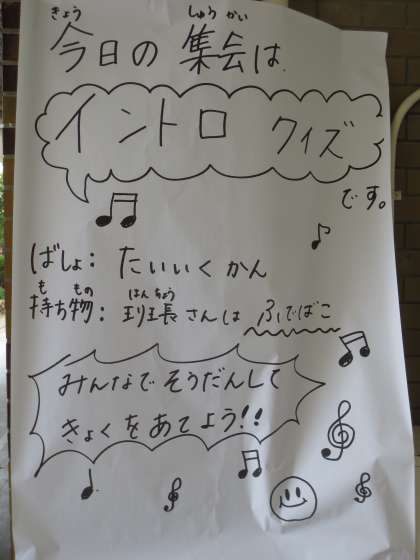 きょう しゅう かい
今日の 集会は
イントロ クイズ
です。
ばしょ: たいいくかん
も もの はんちょう
持ち物: 班長さんは ふでばこ
みんなでそうだんして
きょくをあてよう!!